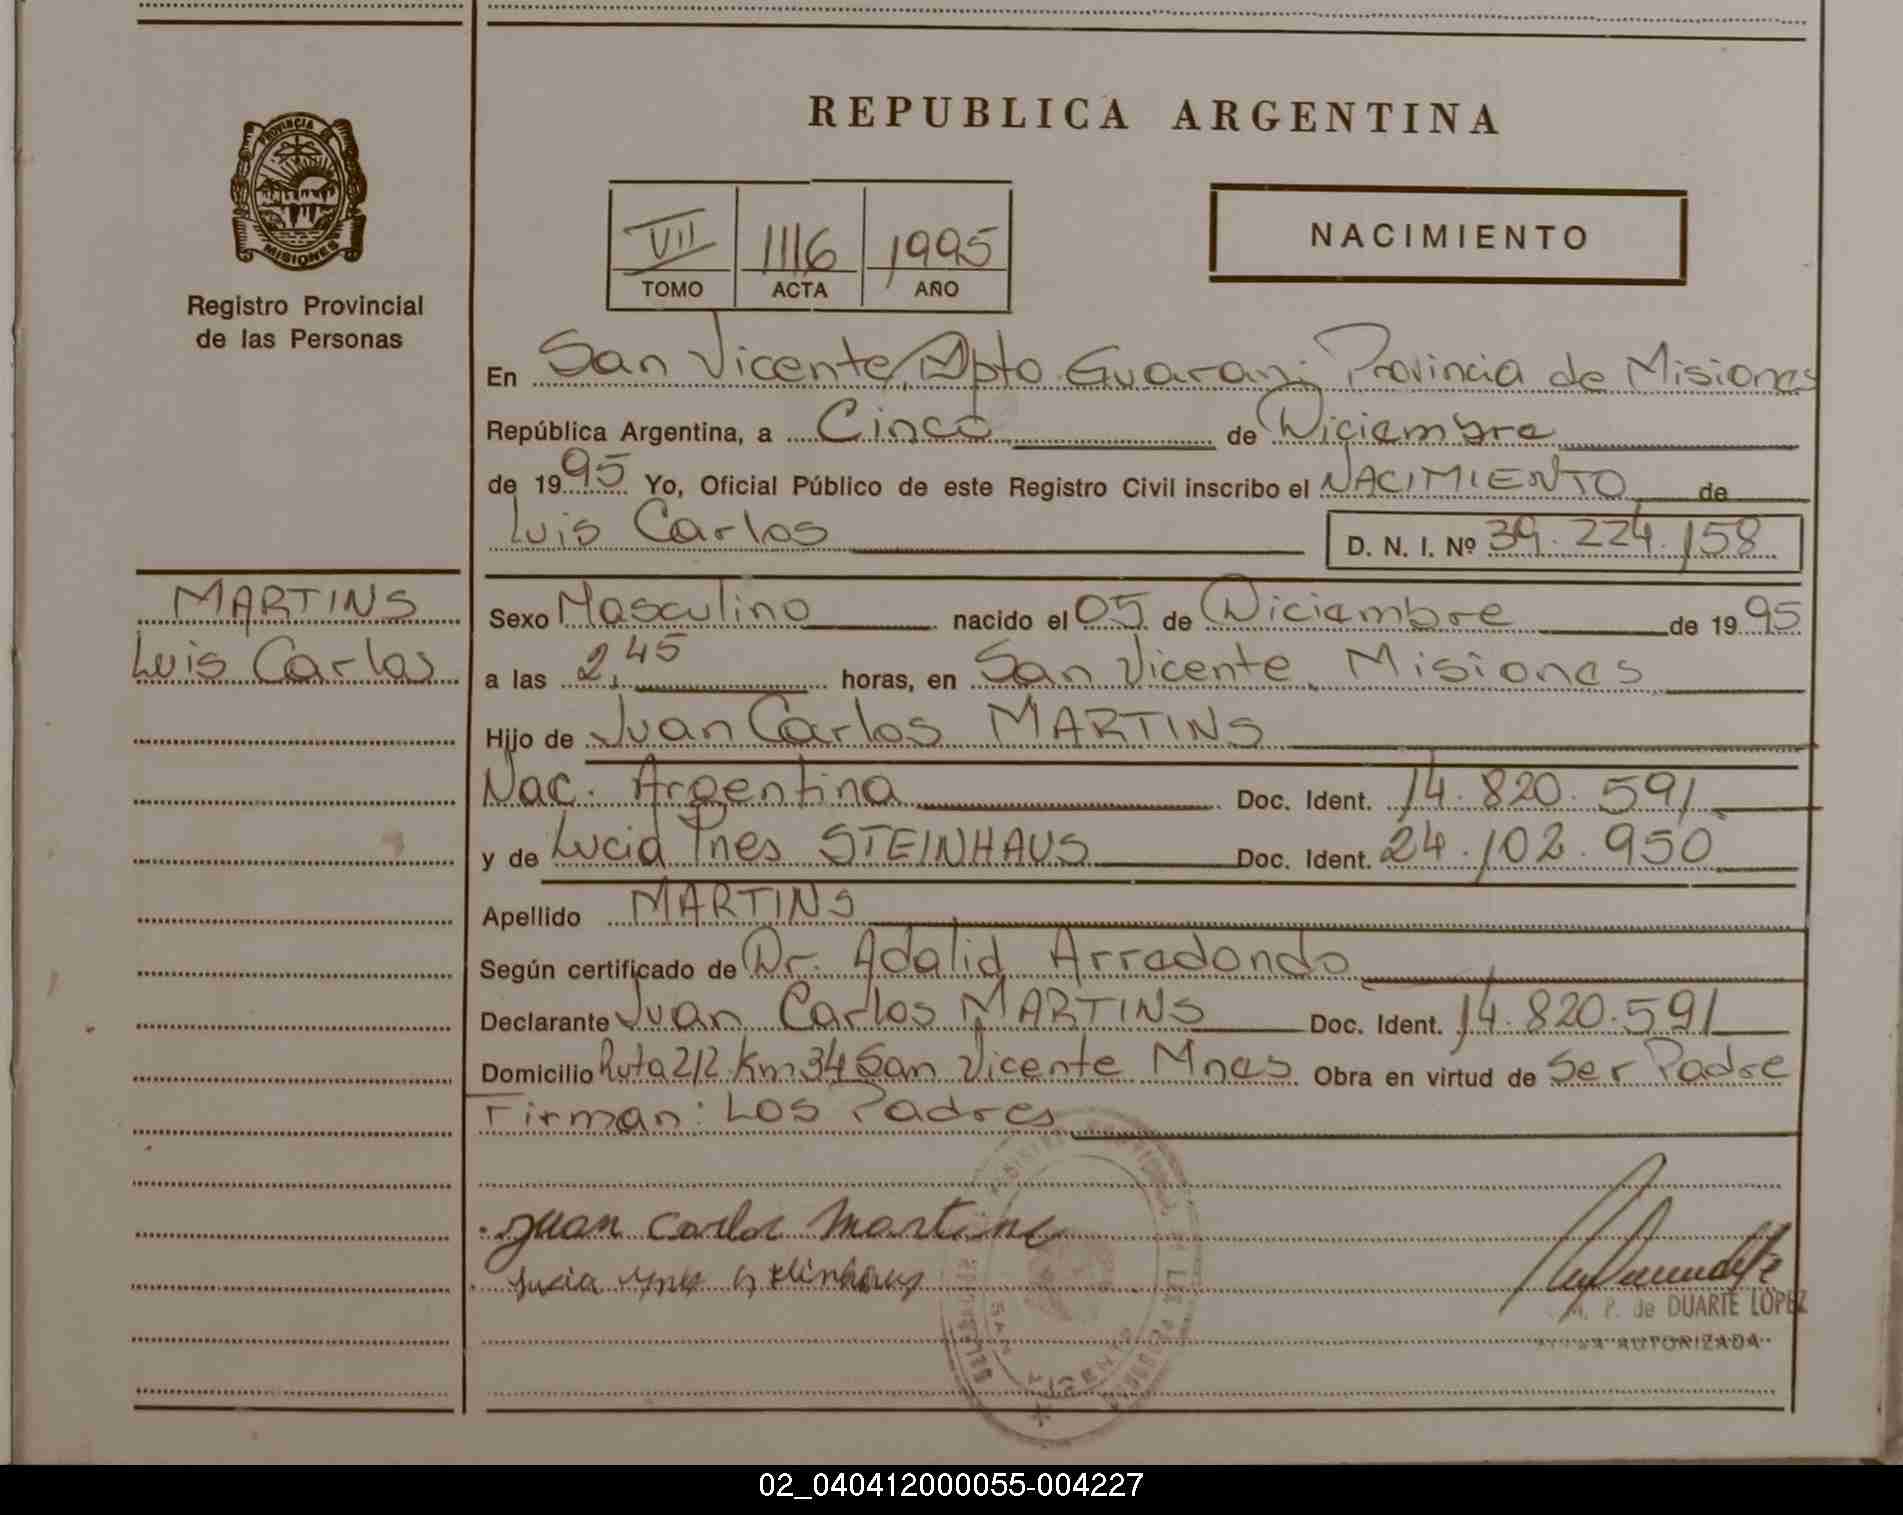 REPUBLICA ARGENTINA
PROVINCIA DE
MISIONES
Registro Provincial
de las Personas
VII 1116 1995
TOMO ACTA AÑO
NACIMIENTO
En San Vicente, Dpto Guarani Provincia de Misiones
República Argentina, a Cinco de Diciembre
de 1995 Yo, Oficial Público de este Registro Civil inscribo el NACIMIENTO de
Luis Carlos D. N. I. Nº 39.224.158
MARTINS
Luis Carlos
Sexo Masculino nacido el 05 de Diciembre de 1995
a las 2,45 horas, en San Vicente, Misiones
Hijo de Juan Carlos MARTINS
Nac. Argentina Doc. Ident. 14.820.591
y de Lucia Ines STEINHAUS Doc. Ident. 24.102.950
Apellido MARTINS
Según certificado de Dr. Adalid Arredondo
Declarante Juan Carlos MARTINS Doc. Ident. 14.820.591
Domicilio Ruta 212 Km 34 San Vicente Mnes Obra en virtud de Ser Padre
Firman: Los Padres
Juan Carlos Martins
Lucia Ynes
SAN VICENTE
M. P. de DUARTE LOPEZ
AUTORIZADA
02_040412000055-004227